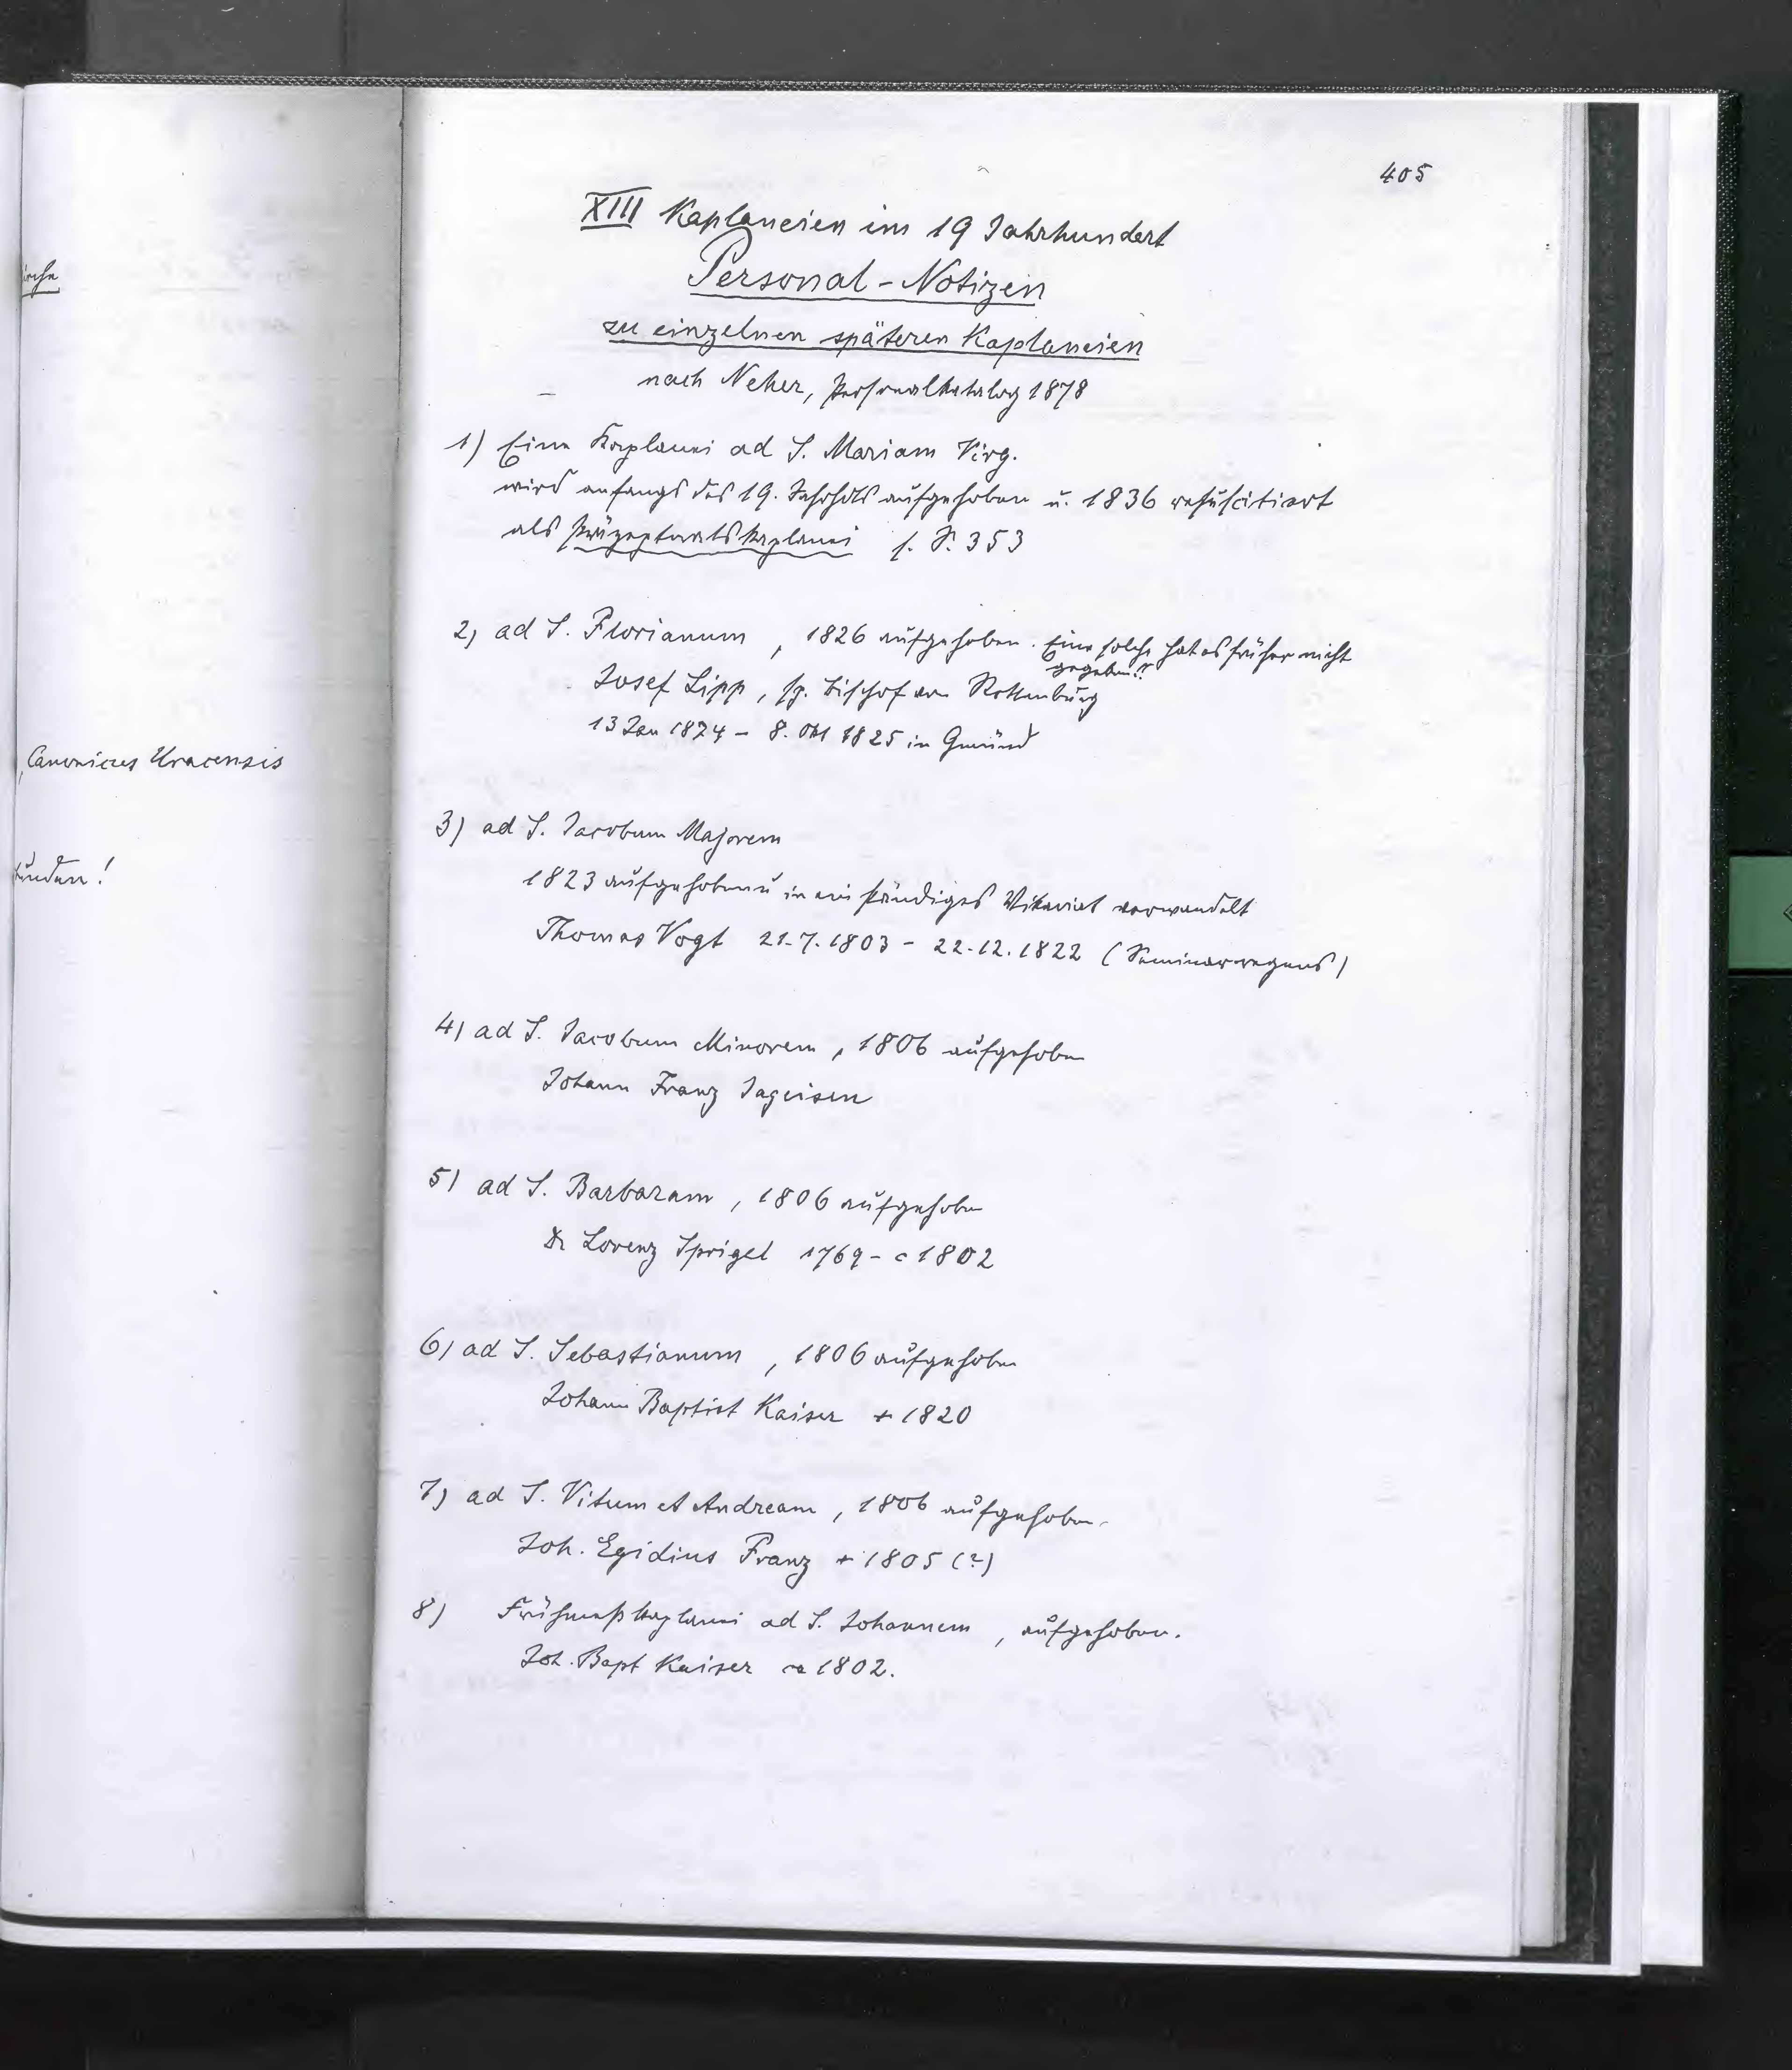 405
XIII Kaplaneien im 19 Jahrhundert
Personal-Notizen
zu einzelnen späteren Kaplaneien
nach Neher, Personalkatalog 1878
1) Eine Kaplanei ad S. Mariam Virg.
wird anfangs des 19. Jahrhdts aufgehoben u. 1836 resuscitiert
als Präzeptoratskaplanei s. S. 353
2) ad S. Florianum, 1826 aufgehoben. Eine solche hat es früher nicht
gegeben!?
Josef Lipp, sp. Bischof von Rottenburg
13 Jan 1824 - 8. Okt 1825 in Gmünd
3) ad S. Jacobum Majorem
1823 aufgehoben u in ein ständiges Vikariat verwandelt
Thomas Vogt 21.7.1803 - 22.12.1822 (Seminarregens)
4) ad S. Jacobum Minorem, 1806 aufgehoben
Johann Franz Jageisen
5) ad S. Barbaram, 1806 aufgehoben
Dr Lorenz Sprigel 1769 - c 1802
6) ad S. Sebastianum, 1806 aufgehoben
Johann Baptist Kaiser + 1820
7) ad S. Vitum et Andream, 1806 aufgehoben.
Joh. Egidius Franz + 1805 (?)
8) Frühmeßkaplanei ad S. Johannem, aufgehoben.
Joh. Bapt Kaiser ca 1802.
Canonicus Uracensis